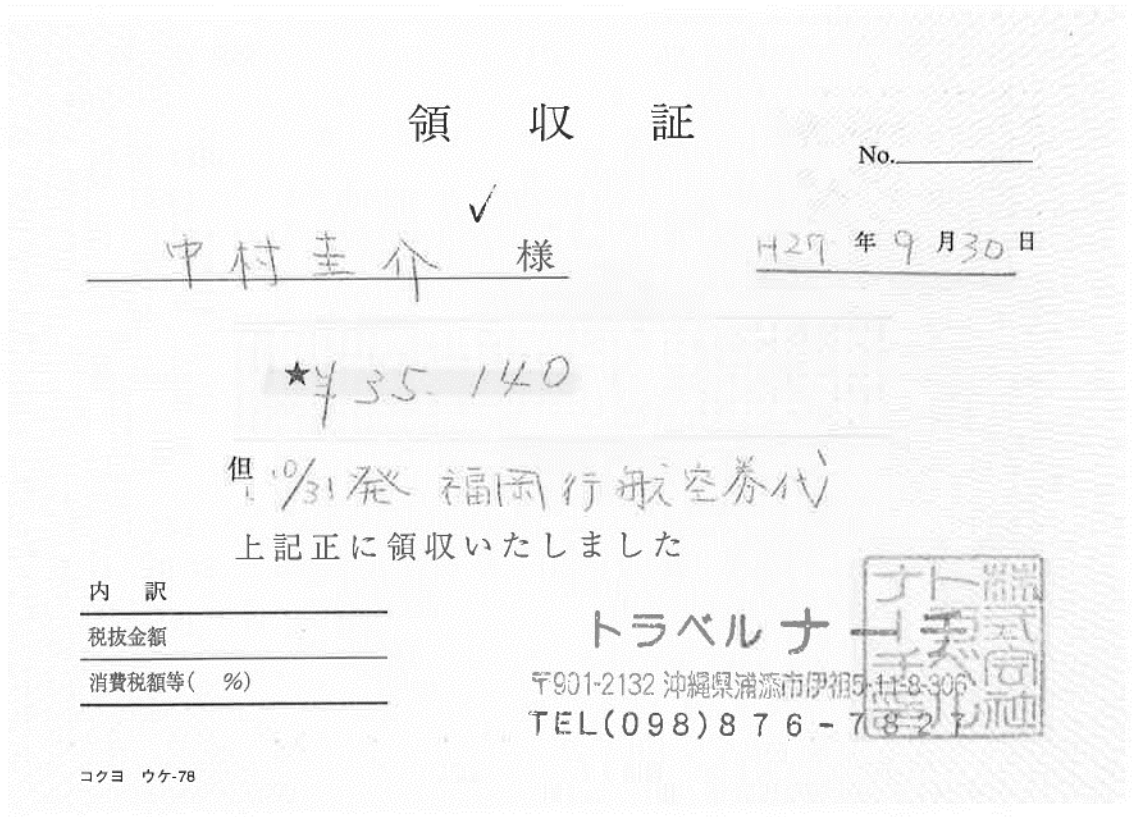 領収証
No.
中村圭介 様
H27年9月30日
★¥35.140
但 10/31発 福岡行航空券代
上記正に領収いたしました
内訳
税抜金額
消費税額等( %)
トラベルナーチ
〒901-2132 沖縄県浦添市伊祖5-11-8-306
TEL(098)876-7827
コクヨ ウケ-78